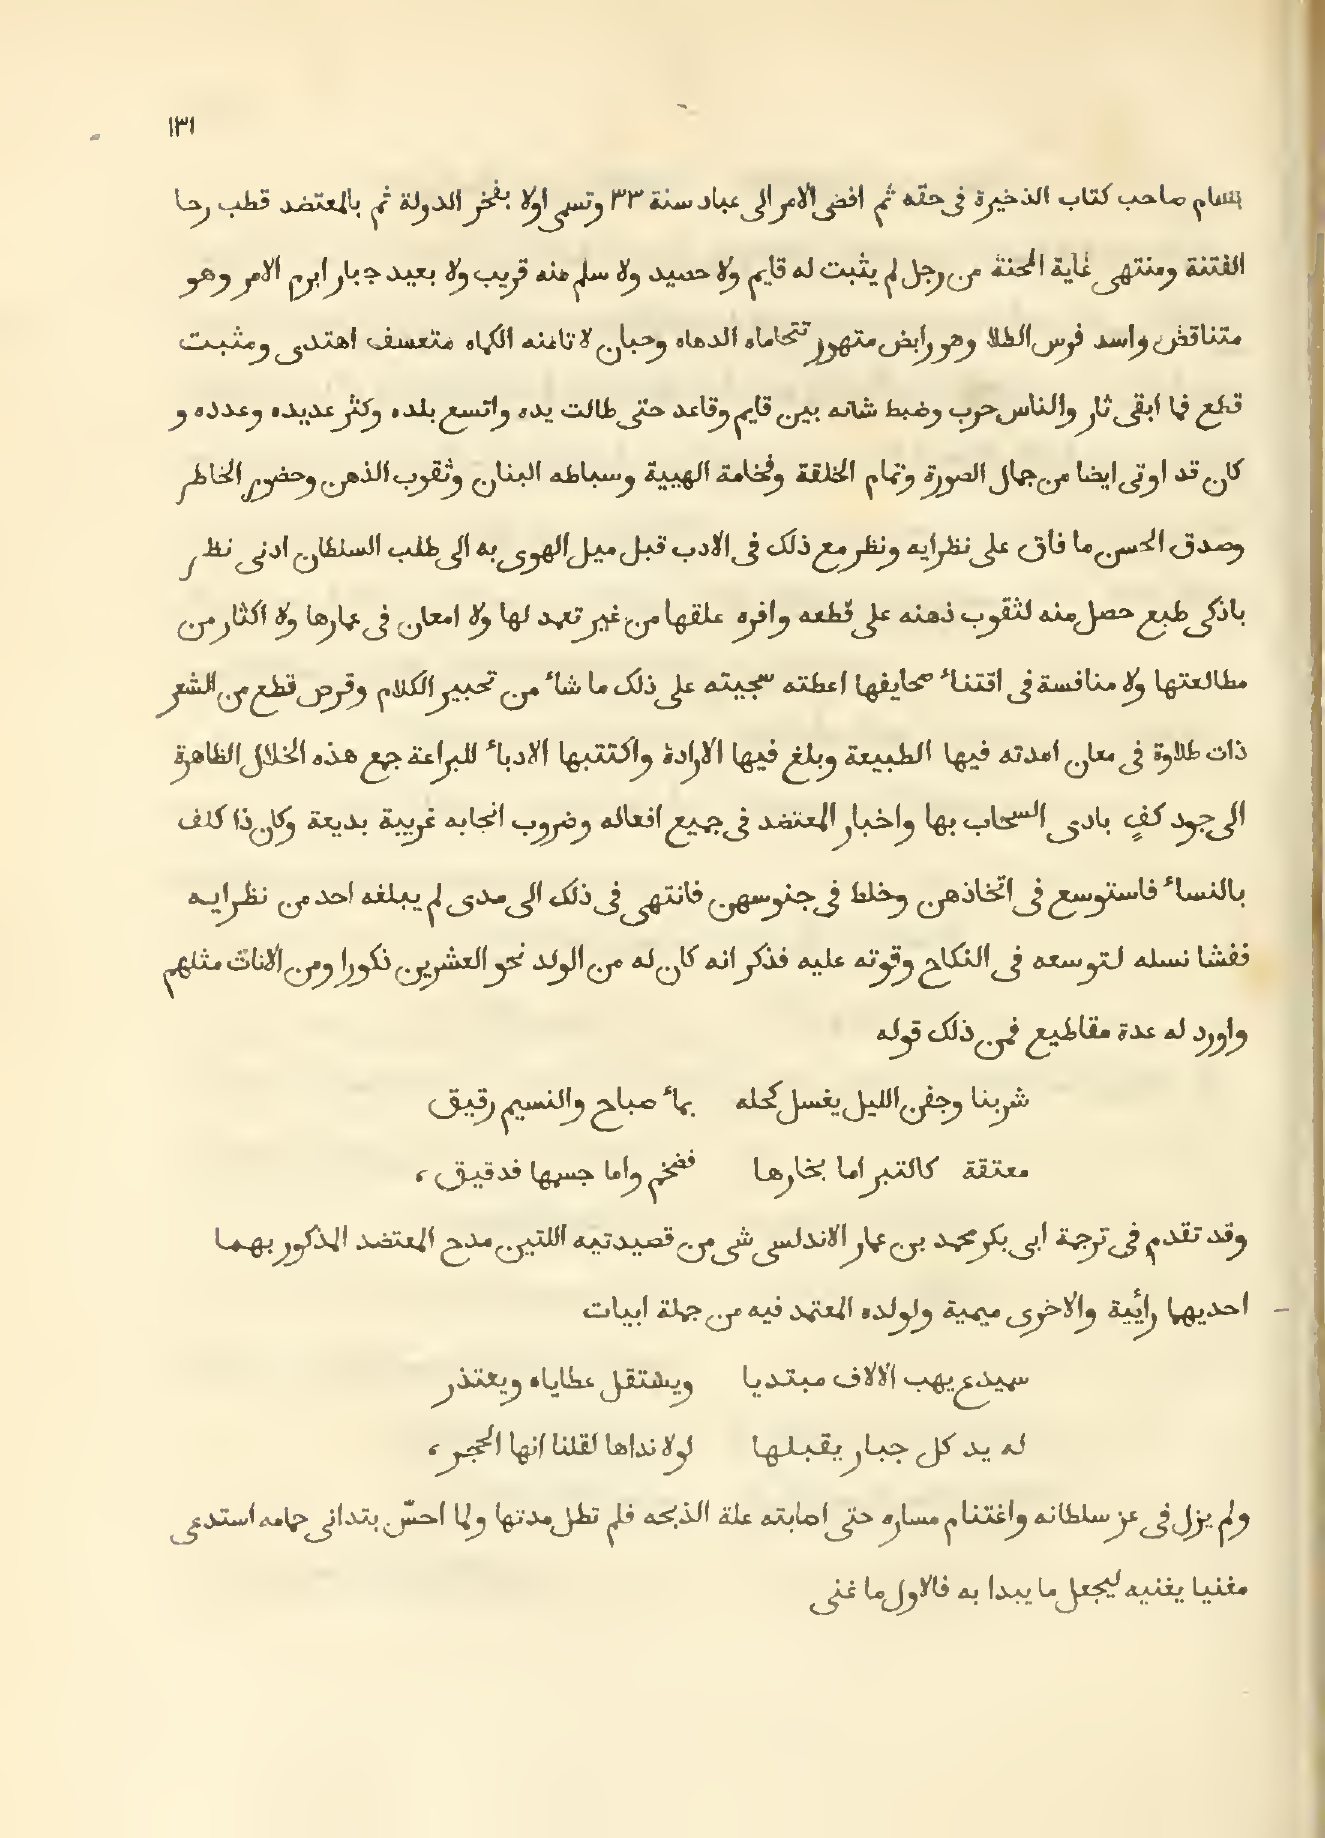 ١٣١
بسام صاحب كتاب الذخيرة فى حقه ثم افضى الامر الى عباد سنة ٣٣ وتسمى اولا بفخر الدولة ثم بالمعتضد قطب رحا
الفتنة ومنتهى غاية المحنة من رجل لم يثبت له قايم ولا حصيد ولا سلم منه قريب ولا بعيد جبار ابرم الامر وهو
متناقض واسد فرس الطلا وهو رابض متهور تتحاماه الدهاه وحبان لا تامنه الكماه متعسف اهتدى ومثبت
قطع فما ابقى ثار والناس حرب وضبط شانه بين قايم وقاعد حتى طالت يده واتسع بلده وكثر عديده وعدده و
كان قد اوتى ايضا من جمال الصورة وتمام الخلقة وفخامة الهيية وسباطه البنان وثقوب الذهن وحضور الخاطر
وصدق الحسن ما فاق على نظرايه ونظر مع ذلك فى الادب قبل ميل الهوى به الى طلب السلطان ادنى نظر
باذكى طبع حصل منه لثقوب ذهنه على قطعه وافره علقها من غير تعهد لها ولا امعان فى عمارها ولا اكثار من
مطالعتها ولا منافسة فى اقتناء صحايفها اعطته سجيته على ذلك ما شاء من تحبير الكلام وقرض قطع من الشعر
ذات طلاوة فى معان امدته فيها الطبيعة وبلغ فيها الارادة واكتتبها الادباء للبراعة جمع هذه الخلال الظاهرة
الى جود كفٍ بادى السحاب بها واخبار المعتضد فى جميع افعاله وضروب انحابه غريبة بديعة وكان ذا كلف
بالنساء فاستوسع فى اتخاذهن وخلط فى جنوسهن فانتهى فى ذلك الى مدى لم يبلغه احد من نظرايه
ففشا نسله لتوسعه فى النكاح وقوته عليه فذكر انه كان له من الولد نحو العشرين ذكورا ومن الاناث مثلهم
واورد له عدة مقاطيع فمن ذلك قوله
شربنا وجفن الليل يغسل كحله بماء صباح والنسيم رقيق
معتقة كالتبر اما بخارها فضخم واما جسمها فدقيق ،
وقد تقدم فى ترجمة ابى بكر محمد بن عمار الاندلسى شى من قصيدتيه اللتين مدح المعتضد المذكور بهما
احديهما رأيية والاخرى ميمية ولولده المعتمد فيه من جملة ابيات
سميدع يهب الالاف مبتديا ويستقل عطاياه ويعتذر
له يد كل جبار يقبلها لولا نداها لقلنا انها الحجر ،
ولم يزل فى عز سلطانه واغتنام مساره حتى اصابته علة الذبحه فلم تطل مدتها ولما احسّ بتدانى حمامه استدعى
مغنيا يغنيه ليجعل ما يبدا به فالاول ما غنى